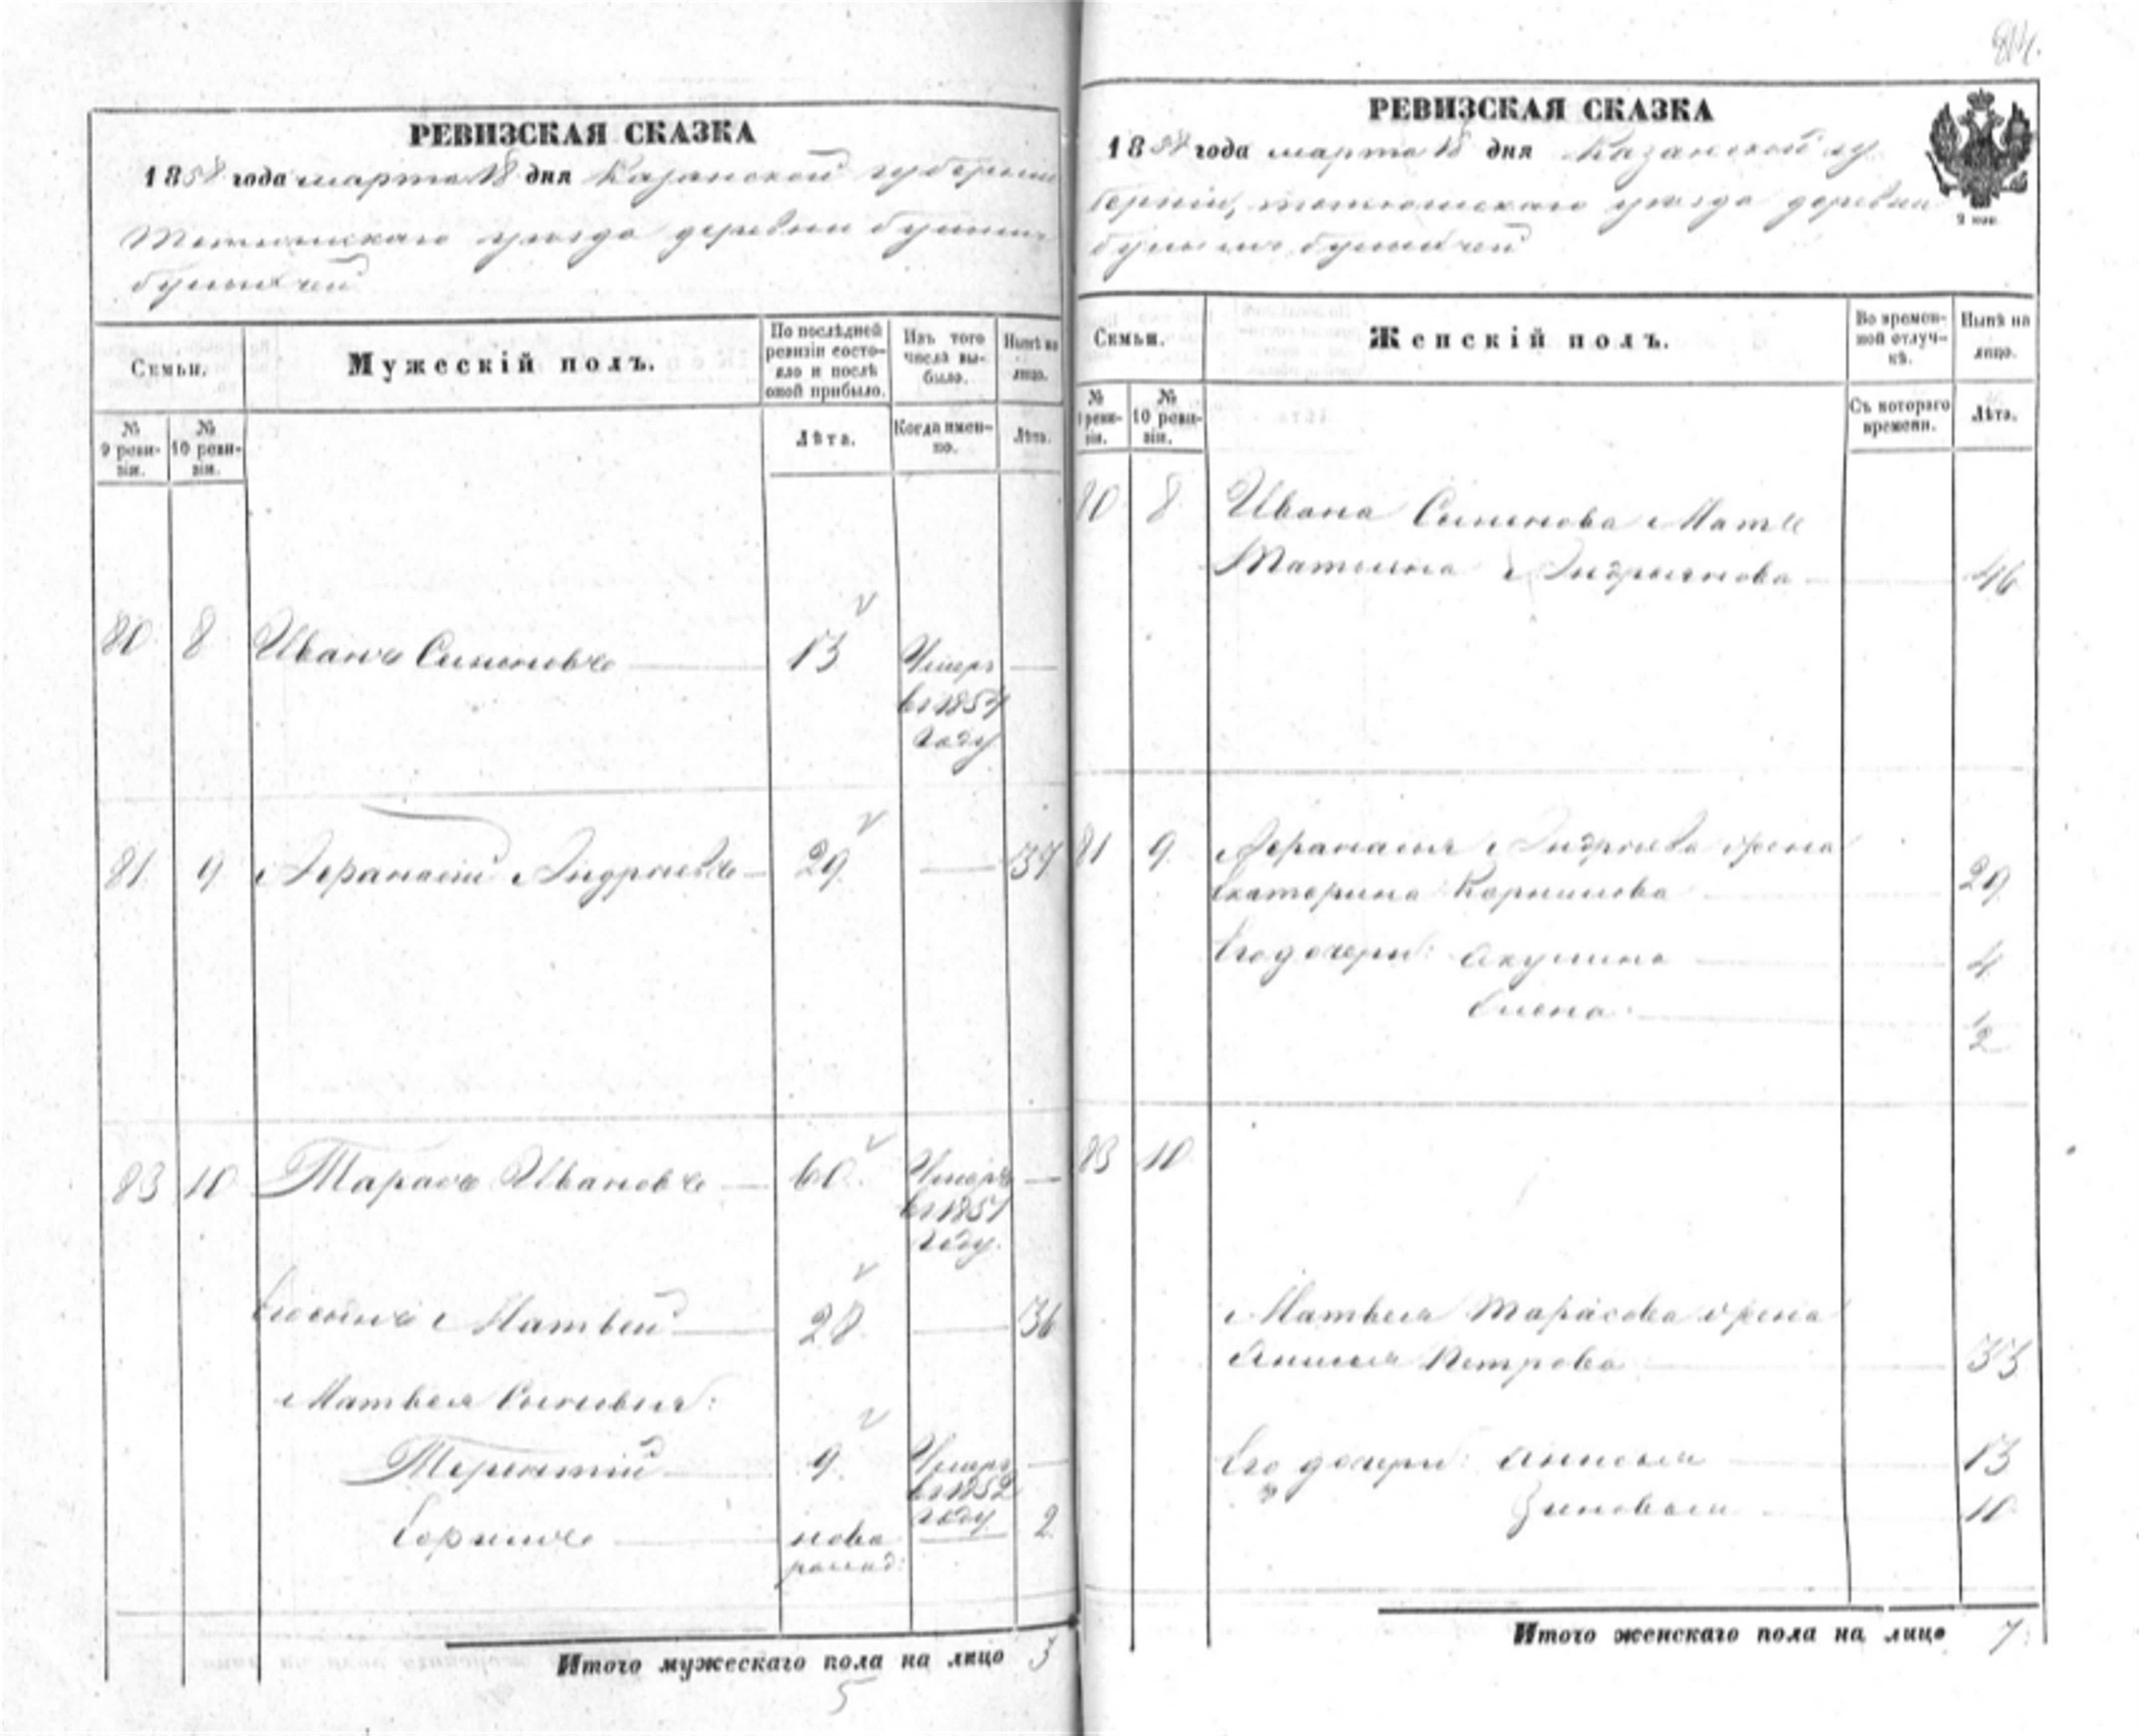 РЕВИЗСКАЯ СКАЗКА
1858 года марта 18 дня Казанской губерніи
Тетюшскаго уезда деревни
РЕВИЗСКАЯ СКАЗКА
1858 года марта 18 дня Казанской гу
берніи, тетюшскаго уезда деревни
2 коп.
Семьи.
Мужескій полъ.
По послѣдней
ревизіи состо-
яло и послѣ
оной прибыло.
Изъ того
числа вы-
было.
Нынѣ на
лицо.
№
9 реви-
зіи.
№
10 реви-
зіи.
Лѣта.
Когда имен-
но.
Лѣта.
80 8 Иванъ Семеновъ 13 Умеръ
въ 1857
году
81 9 Афанасій Андреевъ 29 37
83 10 Тарасъ Ивановъ 60 Умеръ
въ 1851
году.
Его сынъ Матвей 28 36
Матвея Сыновья:
Терентій 9 Умеръ
въ 1852
году
Ефимъ ново 2
рожд:
Итого мужескаго пола на лицо 3
5
Семьи.
Женскій полъ.
Во времен-
ной отлуч-
кѣ.
Нынѣ на
лицо.
№
9 реви-
зіи.
№
10 реви-
зіи.
Съ котораго
времени.
Лѣта.
80 8 Ивана Семенова Мать
Татьяна Андреянова 46
81 9 Афанасья Андреева жена
Екатерина Корнилова 29
Его дочери: Акулина 4
Елена ½
83 10
Матвея Тарасова жена
Петрова 33
Его дочери: Анисья 13
Зиновья 10
Итого женскаго пола на лицо 7